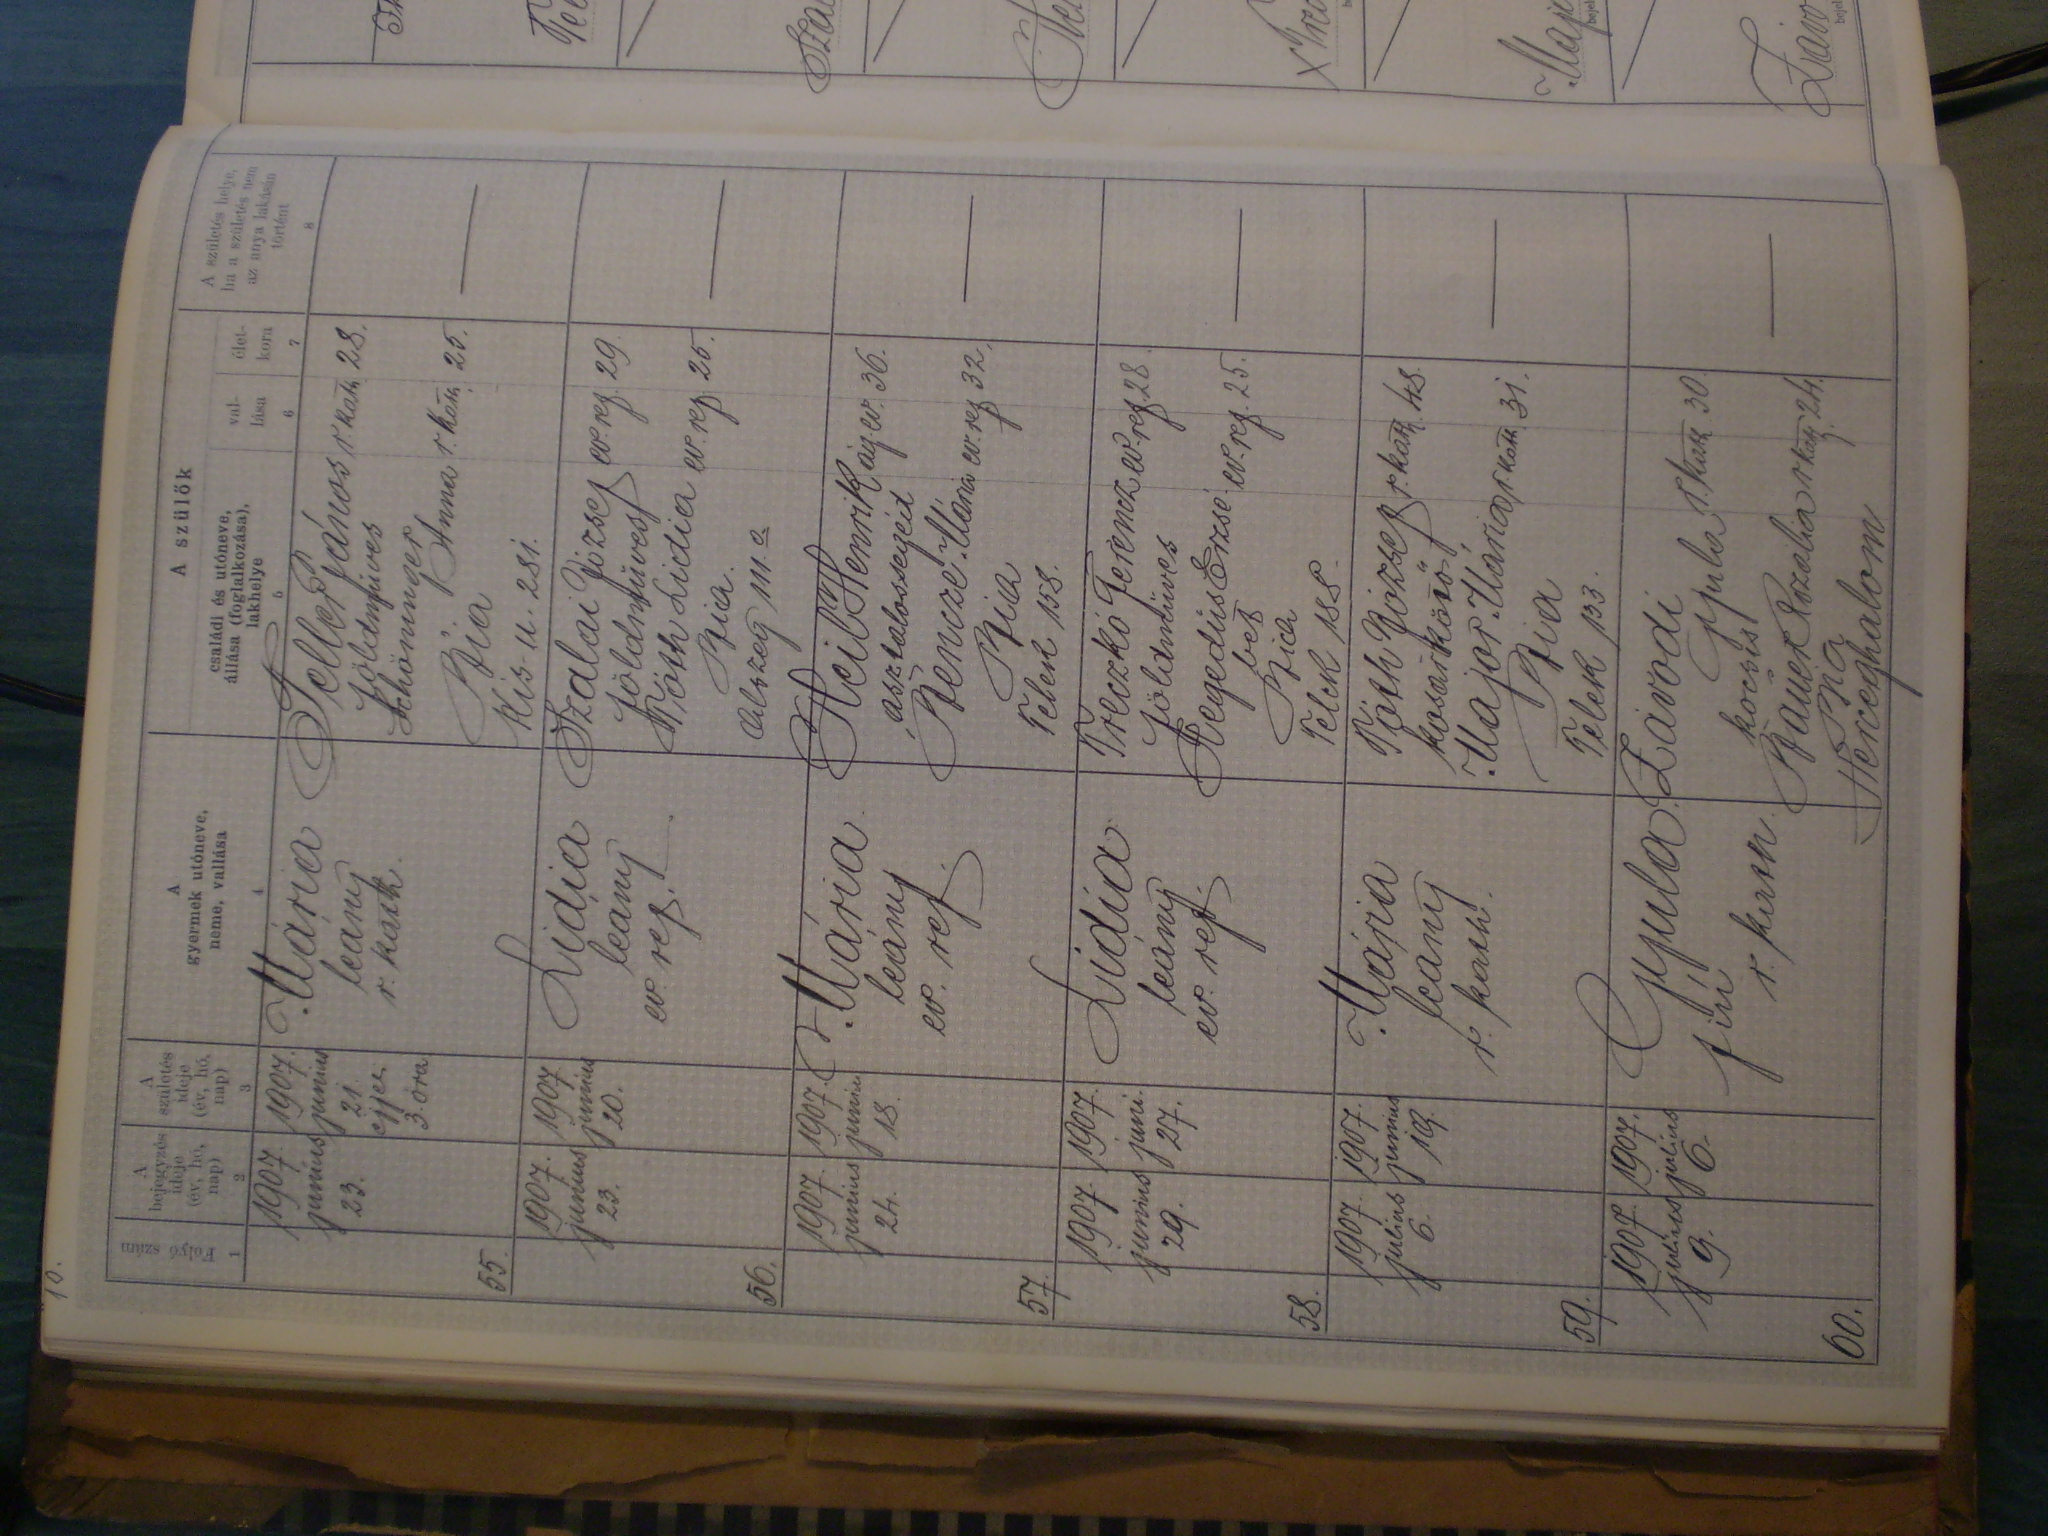 10.
Folyó szám
A bejegyzés ideje (év, hó, nap)
A születés ideje (év, hó, nap)
A gyermek utóneve, neme, vallása
A szülők
családi és utóneve, állása (foglalkozása), lakhelye
val-lása
élet-kora
A születés helye, ha a születés nem az anya lakásán történt
1 2 3 4 5 6 7 8
55.
1907. junius 23.
1907. junius 21. éjjel 3 óra
Mária
leány
r. kath.
Teller János r. kath. 28.
földmíves
Schöninger
Anna r. kath. 25.
Bia
Kis u. 281.
56.
1907. junius 23.
1907. junius 20.
Lidia
leány
ev. ref.
Szalai József ev. ref. 29.
földmíves
Tóth Lidia ev. ref. 25.
Bia.
Alszeg 111. a
57.
1907. junius 24.
1907. juni 18.
Mária
leány
ev. ref.
Heil Henrik ág. ev. 36.
asztalossegéd
Bencze Mária ev. ref. 32.
Bia
Telek 158.
58.
1907. junius 29.
1907. juni. 27.
Lidia
leány
ev. ref.
Treczkó Ferencz ev. ref. 28.
földmíves
Hegedüs Erzsé-bet ev. ref. 25.
Bia
Telek 188.
59.
1907. julius 6.
1907. junius 19.
Mária
leány
r. kath.
Tóth József r. kath. 48.
kosárkötő
Major Mária r. kath. 31.
Bia
Telek 133.
60.
1907. julius 9.
1907. julius 6.
Gyula
fiú
r. kath.
Závodi
Gyula r. kath. 30.
kocsis
Bauer Rozalia r. kath. 24.
Bia
Herceghalom